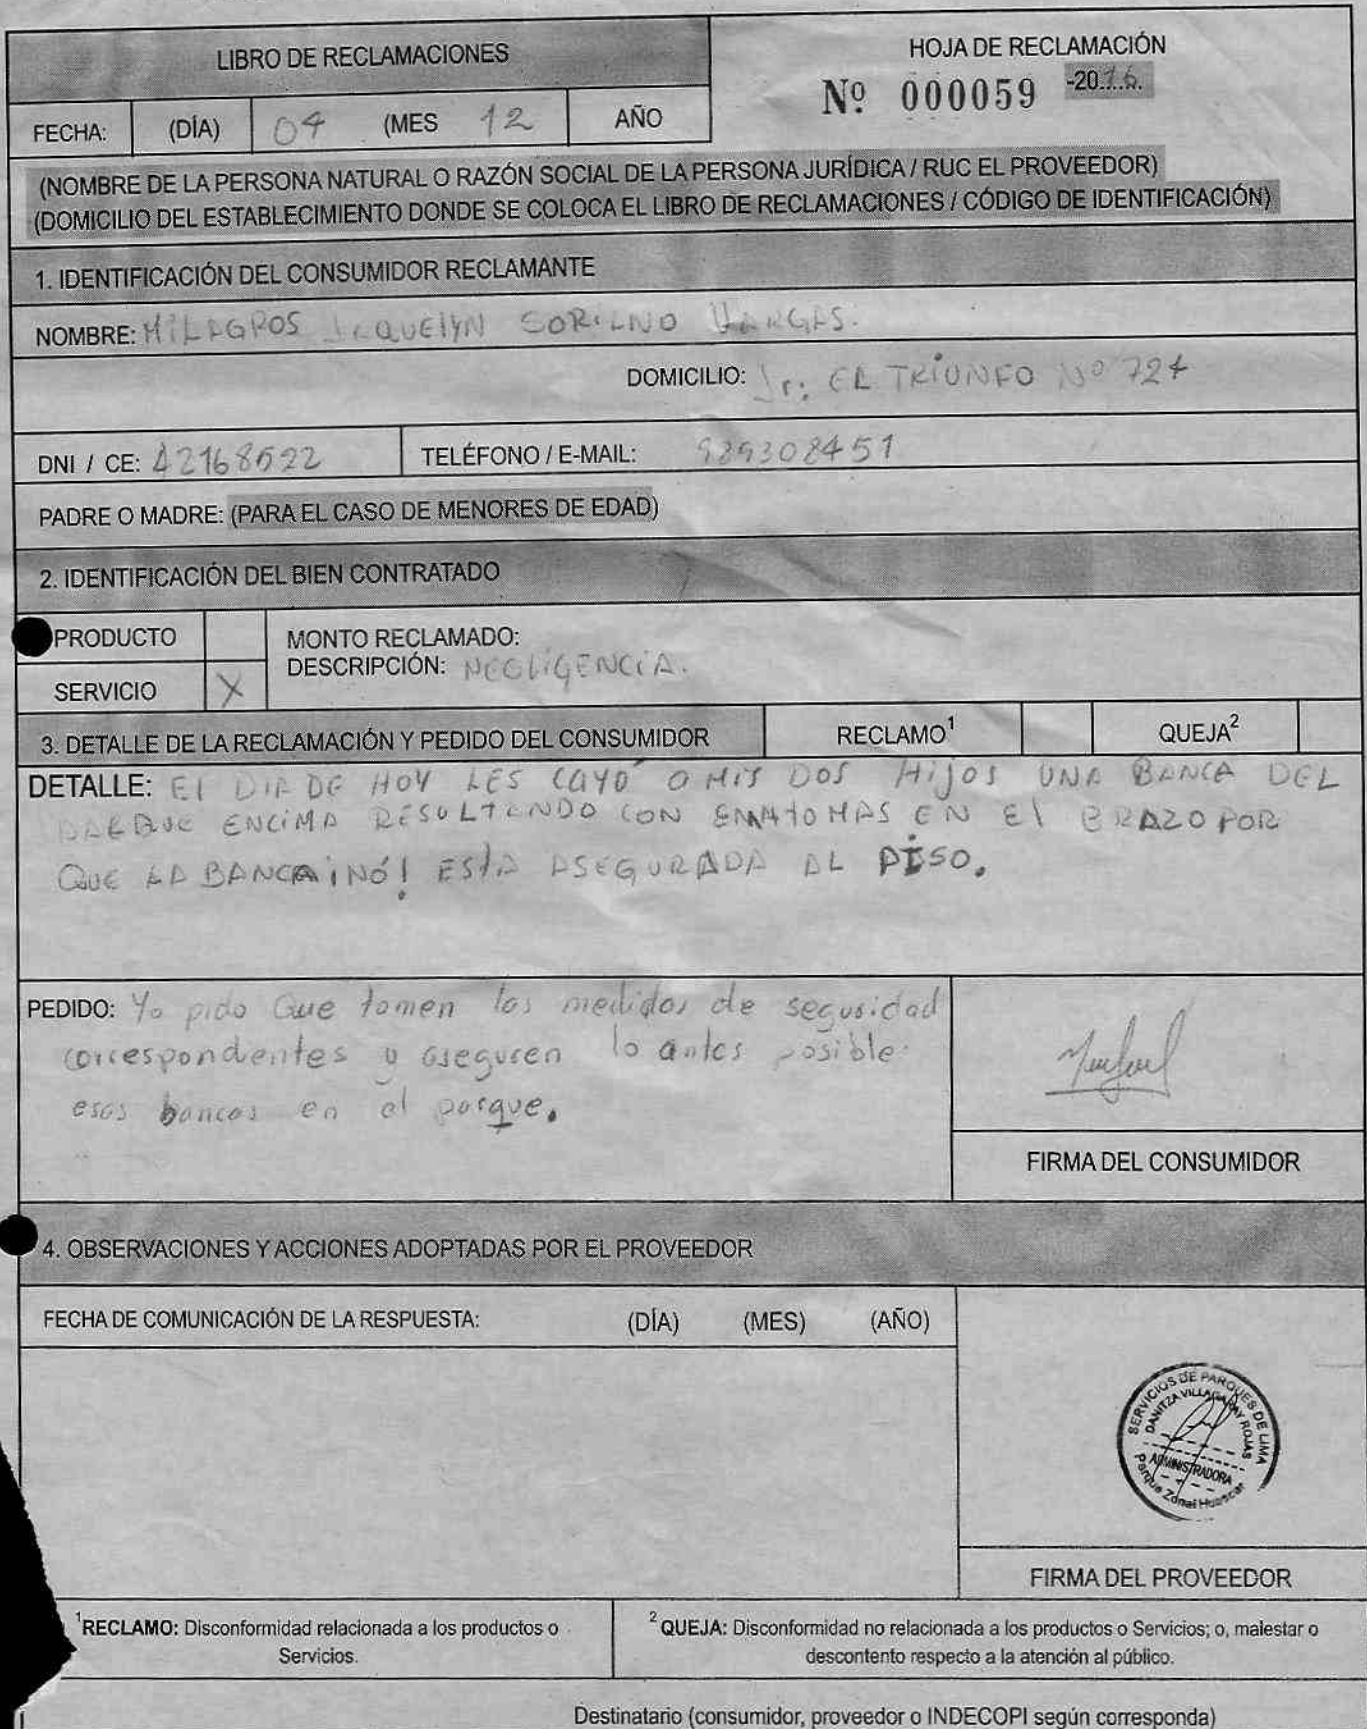 LIBRO DE RECLAMACIONES
HOJA DE RECLAMACIÓN
Nº 000059 -2016.
FECHA: (DÍA) 04 (MES 12 AÑO
(NOMBRE DE LA PERSONA NATURAL O RAZÓN SOCIAL DE LA PERSONA JURÍDICA / RUC EL PROVEEDOR)
(DOMICILIO DEL ESTABLECIMIENTO DONDE SE COLOCA EL LIBRO DE RECLAMACIONES / CÓDIGO DE IDENTIFICACIÓN)
1. IDENTIFICACIÓN DEL CONSUMIDOR RECLAMANTE
NOMBRE: MILAGROS JAQUELYN SORIANO VARGAS.
DOMICILIO: Jr: EL TRIUNFO Nº 724
DNI / CE: 42168522 TELÉFONO / E-MAIL:
PADRE O MADRE: (PARA EL CASO DE MENORES DE EDAD)
2. IDENTIFICACIÓN DEL BIEN CONTRATADO
PRODUCTO
MONTO RECLAMADO:
SERVICIO X
DESCRIPCIÓN: NEGLIGENCIA.
3. DETALLE DE LA RECLAMACIÓN Y PEDIDO DEL CONSUMIDOR RECLAMO1 QUEJA2
DETALLE: El DIA DE HOY LES CAYÓ A MIS DOS HIJOS UNA BANCA DEL
PARQUE ENCIMA RESULTANDO CON EMATOMAS EN El BRAZO POR
QUE LA BANCA ¡NÓ! ESTA ASEGURADA AL PISO.
PEDIDO: Yo pido Que tomen las medidas de seguridad
correspondientes y aseguren lo antes posible
esas bancas en el parque.
FIRMA DEL CONSUMIDOR
4. OBSERVACIONES Y ACCIONES ADOPTADAS POR EL PROVEEDOR
FECHA DE COMUNICACIÓN DE LA RESPUESTA: (DÍA) (MES) (AÑO)
SERVICIOS DE PARQUES DE LIMA
DANITZA VILLAGARAY ROJAS
ADMINISTRADORA
Parque Zonal Huascar
FIRMA DEL PROVEEDOR
1RECLAMO: Disconformidad relacionada a los productos o
Servicios.
2 QUEJA: Disconformidad no relacionada a los productos o Servicios; o, malestar o
descontento respecto a la atención al público.
Destinatario (consumidor, proveedor o INDECOPI según corresponda)